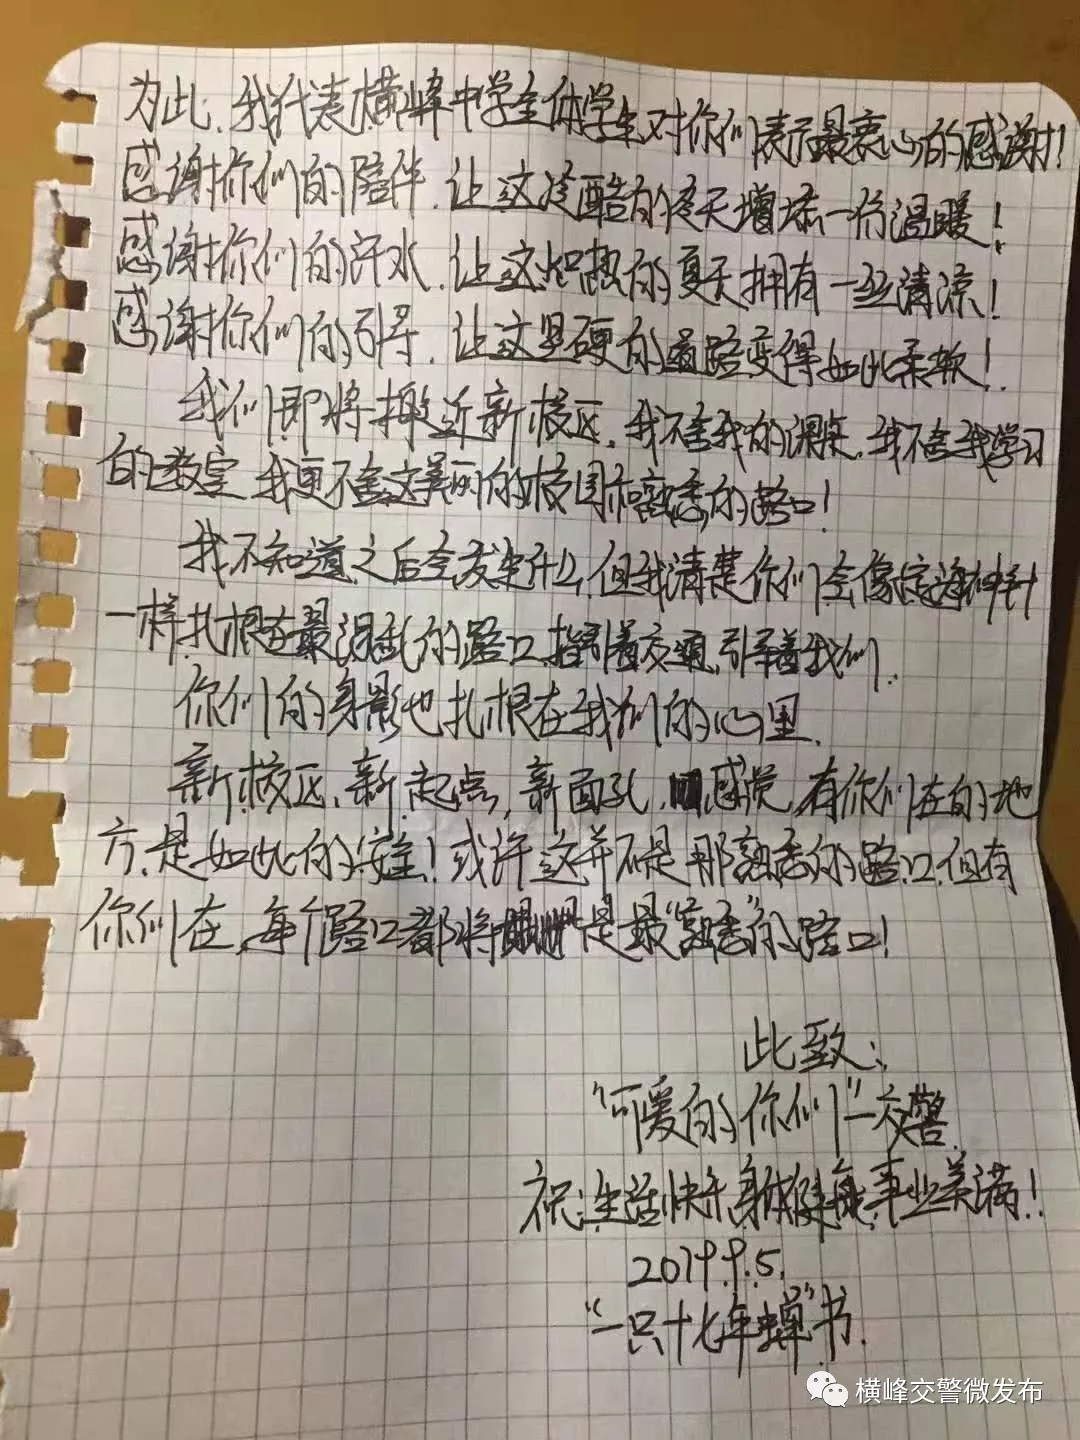 为此,我代表横峰中学全体学生对你们表示最衷心的感谢!
感谢你们的陪伴,让这冷酷的冬天增添一份温暖!
感谢你们的汗水,让这炽热的夏天拥有一丝清凉!
感谢你们的引导,让这坚硬的道路变得如此柔软!
我们即将搬近新校区,我不舍我的课桌,我不舍我学习
的教室,我更不舍这美丽的校园和熟悉的路口!
我不知道之后会发生什么,但我清楚你们会像定海神针
一样扎根在最混乱的路口,指引着交通,引导着我们.
你们的身影也扎根在我们的心里.
新校区,新起点,新面孔,感觉有你们在的地
方,是如此的安全!或许这并不是那熟悉的路口,但有
你们在,每个路口都将是最“熟悉”的路口!
此致:
“可爱的你们”—交警.
祝:生活快乐,身体健康,事业美满!
2019.9.5.
“一只十七年蝉”书.
横峰交警微发布